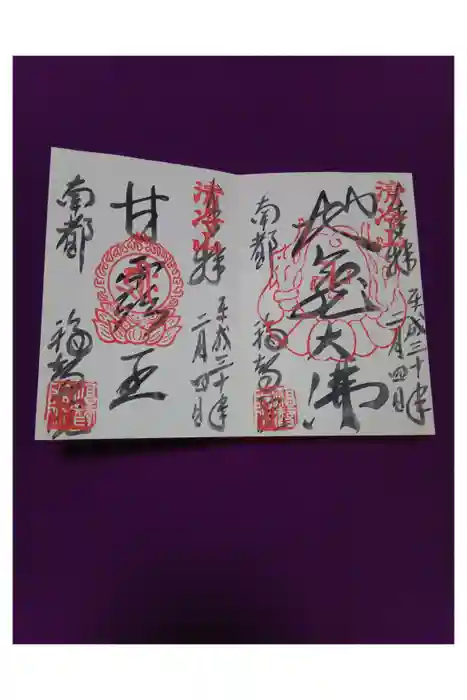 清冷山
奉拝
平成三十年
二月四日
地蔵大佛
南都
福智院
清冷山
奉拝
平成三十年
二月四日
甘露王
南都
福智院